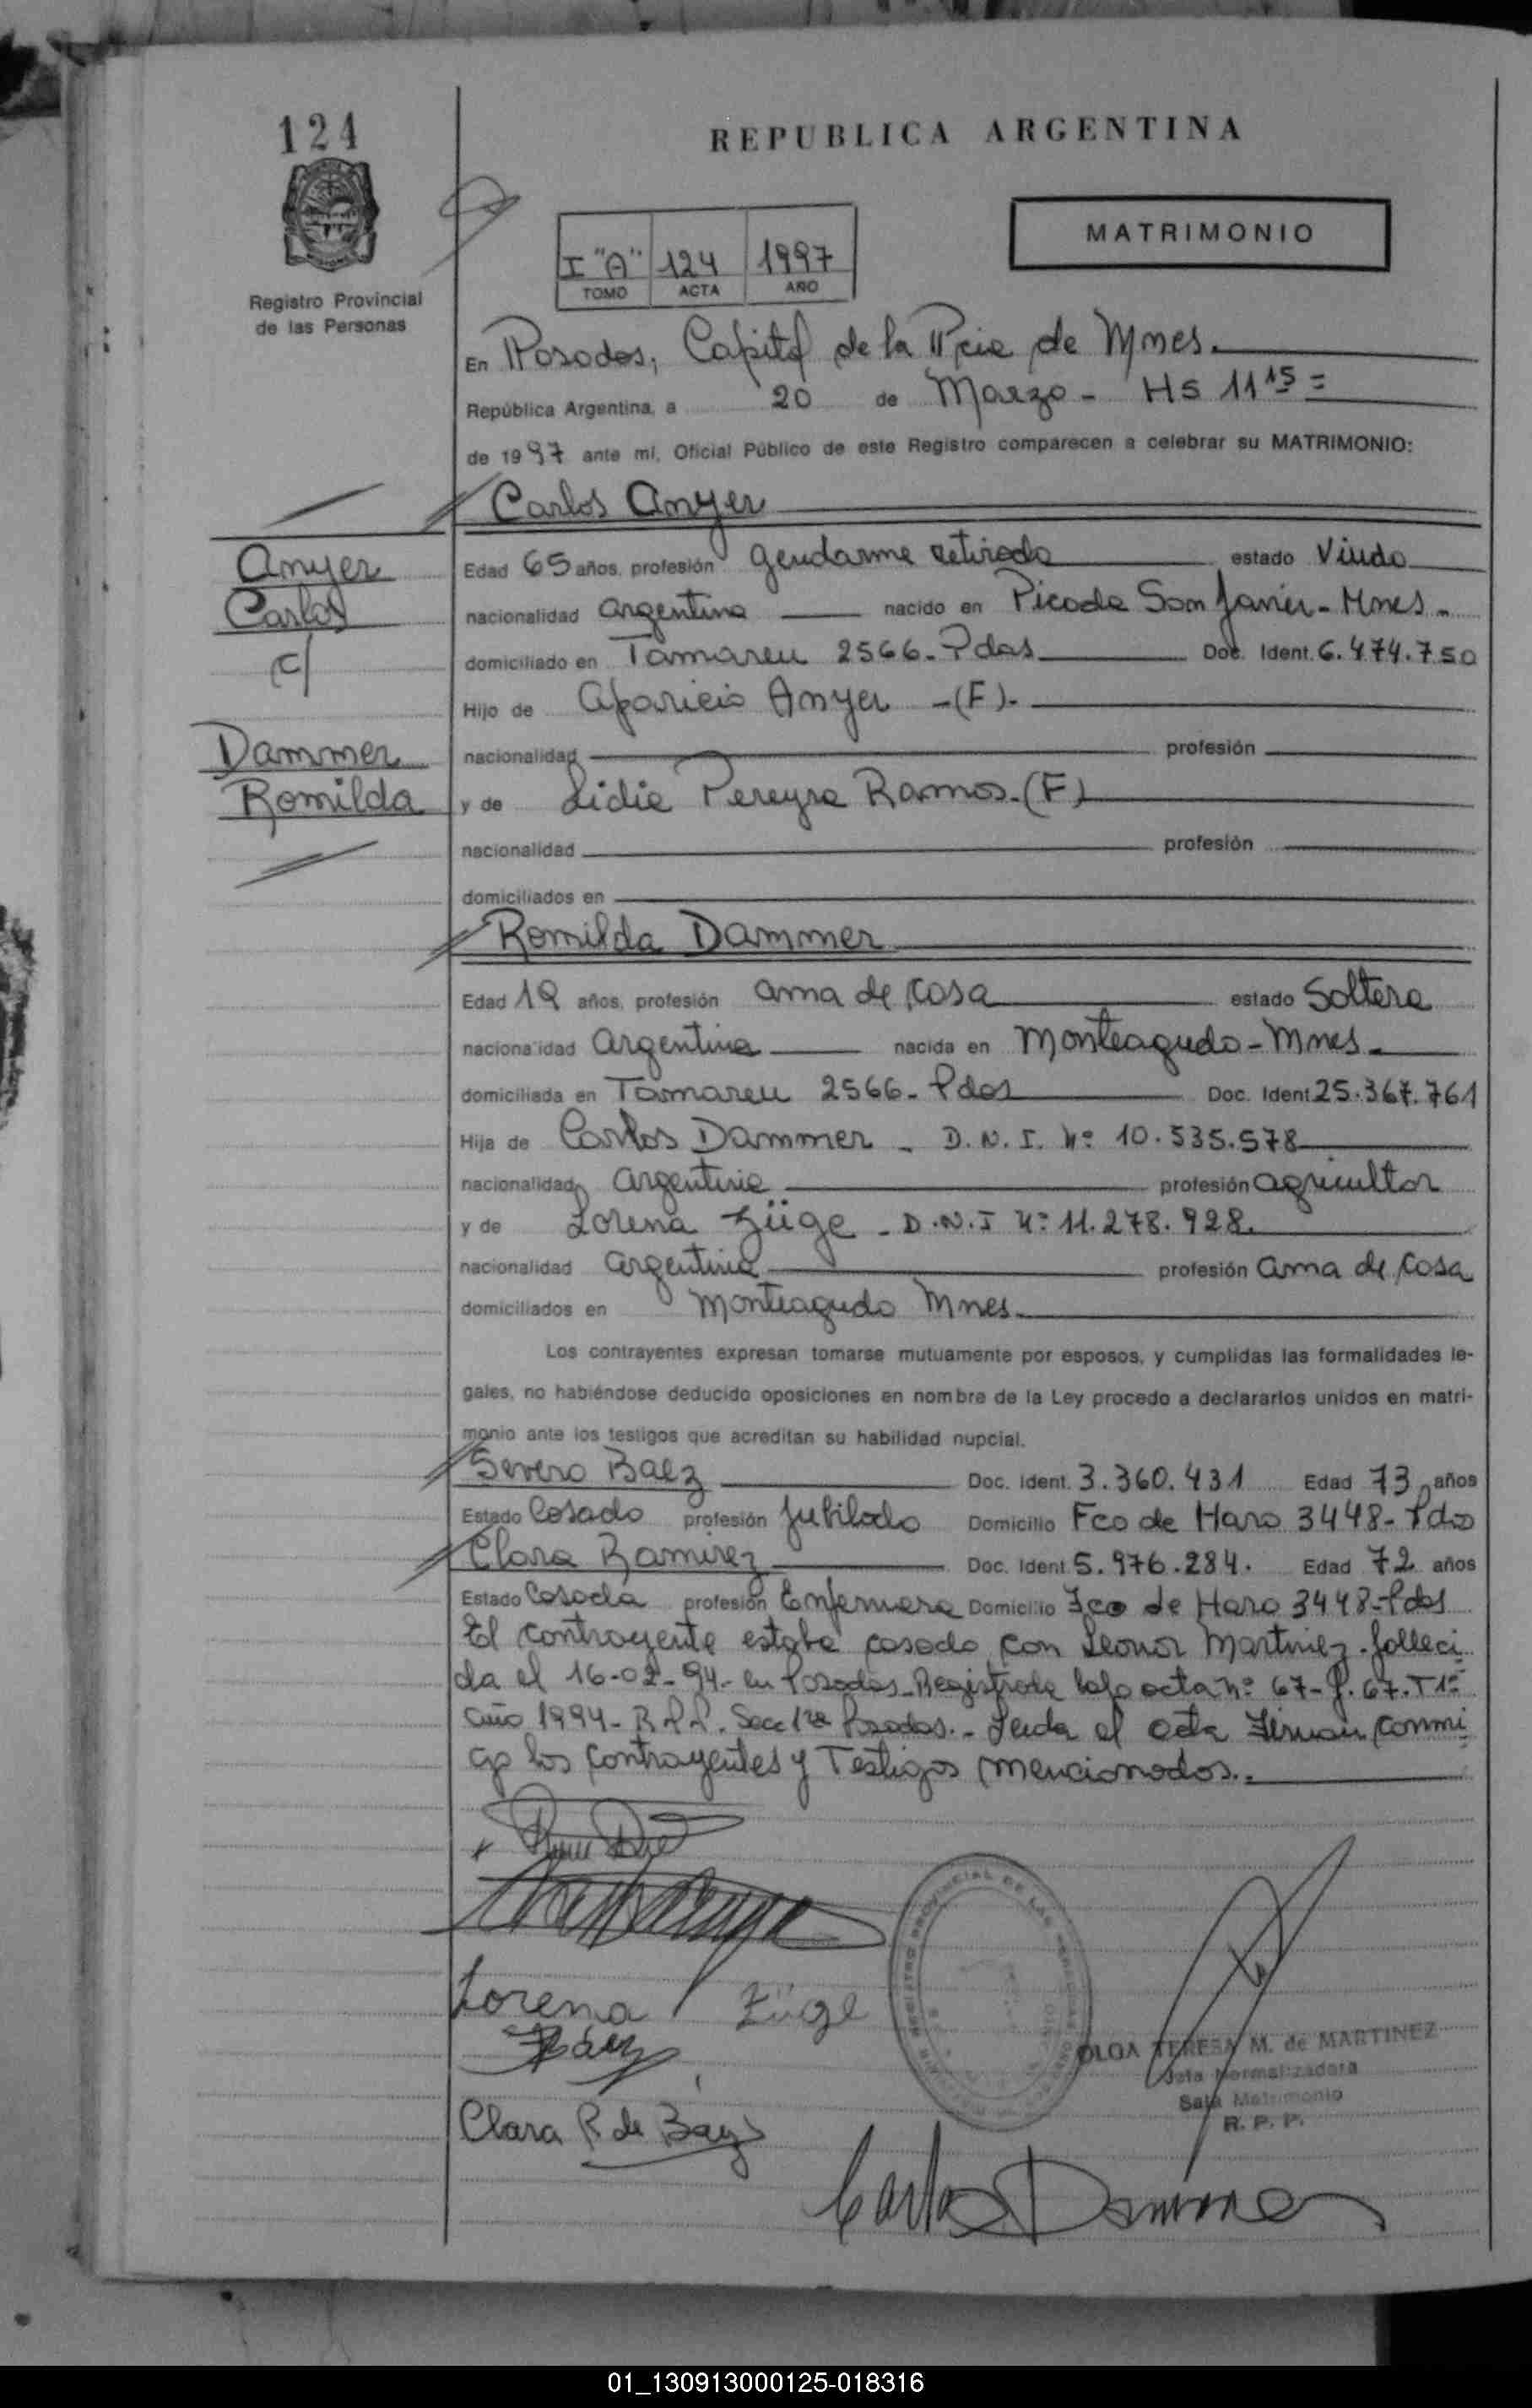 124
REPUBLICA ARGENTINA
MATRIMONIO
I "A" 124 1997
TOMO ACTA AÑO
Registro Provincial
de las Personas
En Posadas, Capital de la Pcia de Mnes.
República Argentina, a 20 de Marzo - Hs 11 15 =
de 1997 ante mi, Oficial Público de este Registro comparecen a celebrar su MATRIMONIO:
Carlos Anyer
Anyer
Carlos
c/
Dammer
Romilda
Edad 65 años, profesión gendarme retirado estado Viudo
nacionalidad argentina nacido en Picada San Javier - Mnes.
domiciliado en Tamareu 2566 - Pdas Doc. Ident. 6.474.750
Hijo de Aparicio Anyer - (F).
nacionalidad profesión
y de Lidia Pereyra Ramos. (F)
nacionalidad profesión
domiciliados en
Romilda Dammer
Edad 19 años, profesión ama de casa estado Soltera
nacionalidad argentina nacida en Monteagudo - Mnes.
domiciliada en Tamareu 2566 - Pdas Doc. Ident 25.367.761
Hija de Carlos Dammer - D.N.I. Nº 10.535.578
nacionalidad argentina profesión agricultor
y de Lorena Züge - D.N.I Nº 11.278.928.
nacionalidad argentina profesión ama de casa
domiciliados en Monteagudo Mnes.
Los contrayentes expresan tomarse mutuamente por esposos, y cumplidas las formalidades le-
gales, no habiéndose deducido oposiciones en nombre de la Ley procedo a declararlos unidos en matri-
monio ante los testigos que acreditan su habilidad nupcial.
Severo Baez Doc. Ident. 3.360.431 Edad 73 años
Estado Casado profesión Jubilado Domicilio Fco de Haro 3448 - Pdas
Clara Ramirez Doc. Ident 5.976.284. Edad 72 años
Estado Casada profesión Enfermera Domicilio Fco de Haro 3448 - Pdas
El contrayente estaba casado con Leonor Martinez - falleci
da el 16-02-94 - en Posadas - Registrada bajo acta nº 67 - f. 67. T 1º
año 1994 - R.P.P. Secc 1ra Posadas. - Leida el acta firman conmi
go los contrayentes y Testigos mencionados.
Lorena Züge
Báez
REGISTRO PROVINCIAL DE LAS PERSONAS
OLGA TERESA M. de MARTINEZ
Jefa Normalizadora
Sala Matrimonio
R. P. P.
Clara R de Baez
Carlos Dammer
01_130913000125-018316